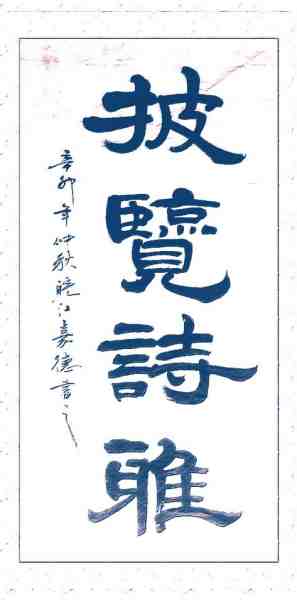 披覽詩雅
辛卯年仲秋曉江嘉德書之